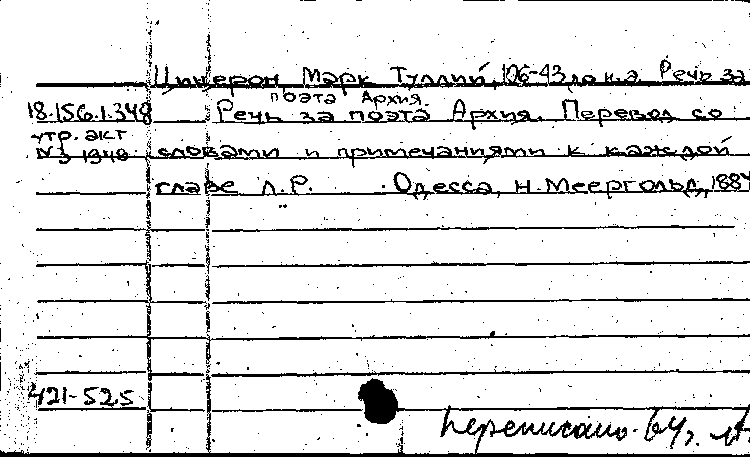 Цицерон Марк Туллий, 106-43 до н.э. Речь за
поэта Архия.
18.156.1.348 Речь за поэта Архия. Перевод со
утр. акт
№3 1948 словами и примечаниями к каждой
главе Л.Р. Одесса, Н. Меергольд, 188
421-525
переписано 64г.